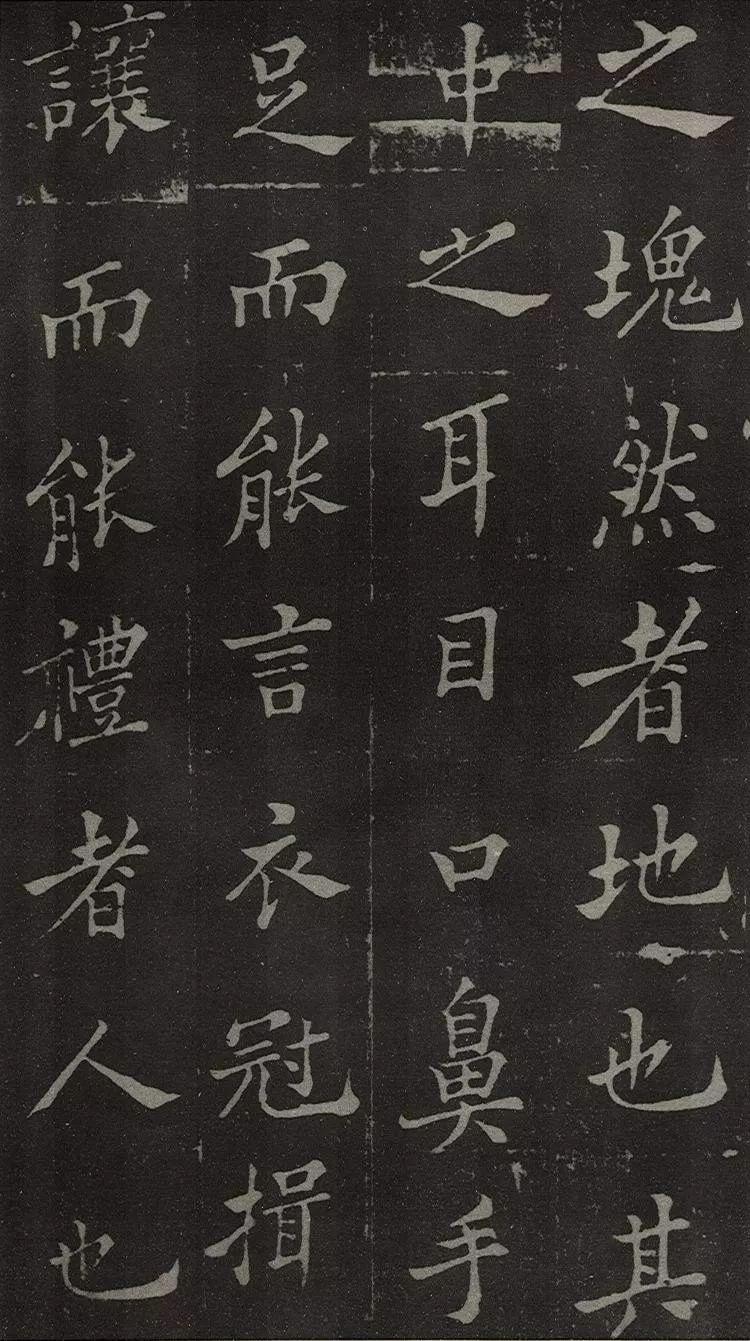 之塊然者地也其
中之耳目口鼻手
足而能言衣冠揖
讓而能禮者人也